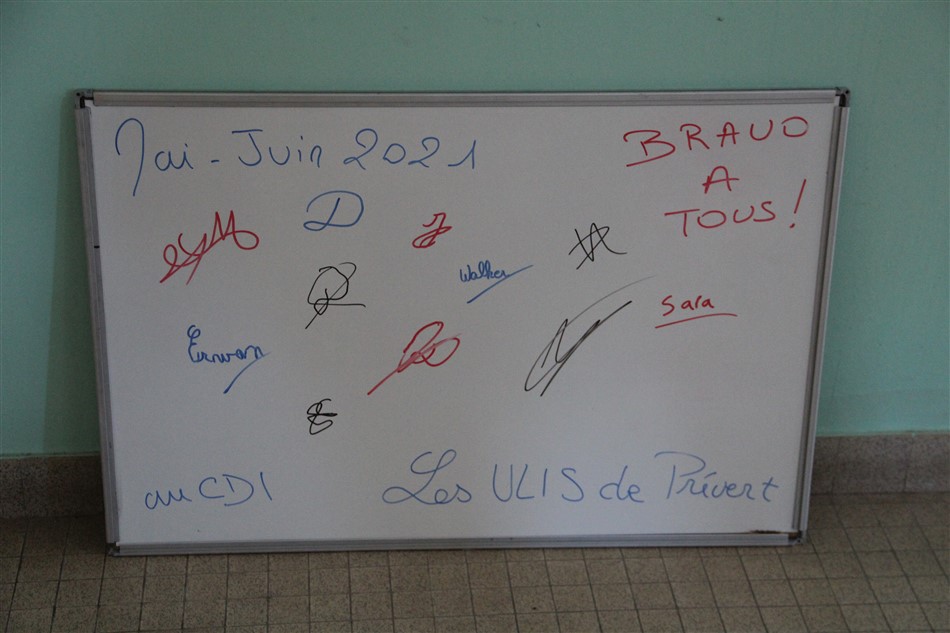 Mai - Juin 2021
BRAVO
A
TOUS !
D
Walker
Sara
Erwan
au CDI
Les ULIS de Prévert